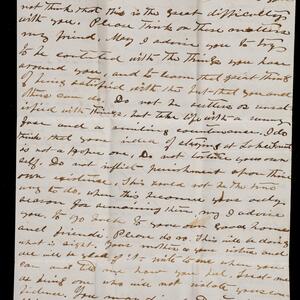 not think that this is the great difficulty
with you. Please think on these matters
my friend. May I advise you to try
to be contented with the things you have
around you, and to learn that great thing
of being satisfied with the best that you and
others can do. Do not be restless or unsat-
isfied with things, but take life with a sunny
face and a smiling countenance. I do
think that idea of staying at
is not a good one. Do not torture your own
self. Do not inflict punishment upon thine
own existence. This would not be the true
way to do, when this becomes your only
reason for annoying them, may I advise
you, to go back to your good home
and friends. Please do so. This will be doing
what is right. Your mother and sisters and
all will be glad of it. Write to me when you
can and tell me how you feel. Trust me
as being one who will not violate your con-
fidence. You may